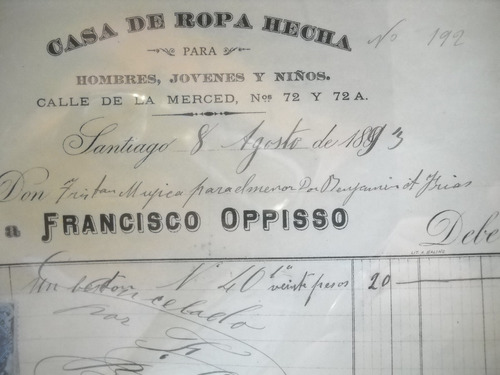 CASA DE ROPA HECHA
No 192
PARA
HOMBRES, JOVENES Y NIÑOS.
CALLE DE LA MERCED, Nos 72 Y 72A.
Santiago 8 Agosto de 1893
Don Tristan Mujica para el menor Don Benjamin A Frias
a FRANCISCO OPPISSO
Debe
Un N 40 veinte pesos 20
por